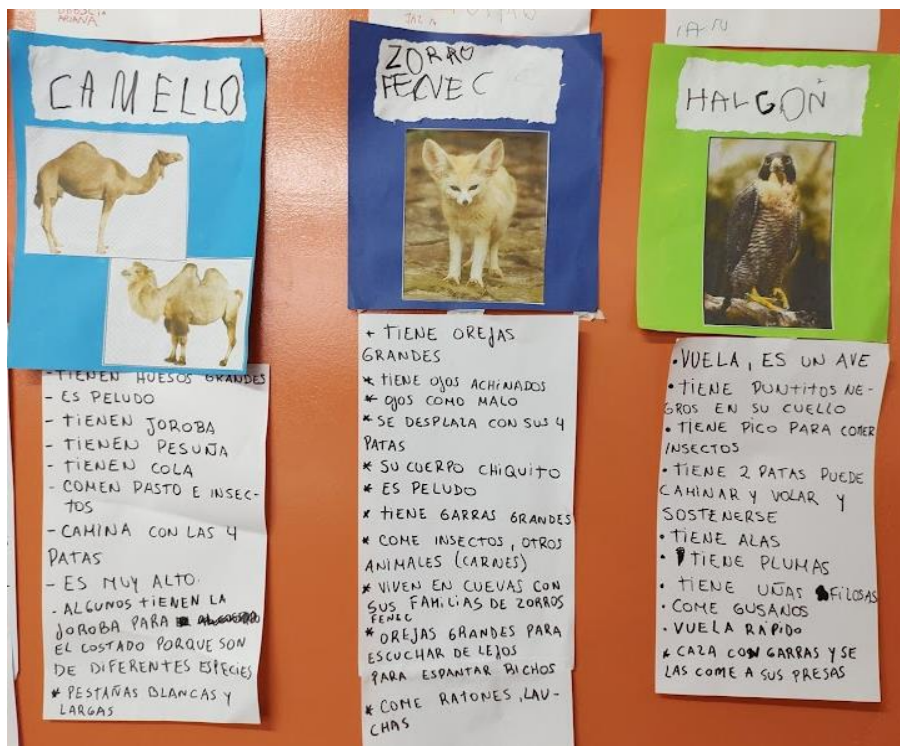 ARIANA
CAMELLO
- TIENEN HUESOS GRANDES
- ES PELUDO
- TIENEN JOROBA
- TIENEN PESUÑA
- TIENEN COLA
- COMEN PASTO E INSEC-
TOS
- CAMINA CON LAS 4
PATAS
- ES MUY ALTO.
- ALGUNOS TIENEN LA
JOROBA PARA
EL COSTADO PORQUE SON
DE DIFERENTES ESPECIES
* PESTAÑAS BLANCAS Y
LARGAS
ZORRO
FECVEC
+ TIENE OREJAS
GRANDES
* TIENE OJOS ACHINADOS
* OJOS COMO MALO
* SE DESPLAZA CON SUS 4
PATAS
* SU CUERPO CHIQUITO
* ES PELUDO
* TIENE GARRAS GRANDES
* COME INSECTOS, OTROS
ANIMALES (CARNES)
* VIVEN EN CUEVAS CON
SUS FAMILIAS DE ZORROS
FENEC
* OREJAS GRANDES PARA
ESCUCHAR DE LEJOS
PARA ESPANTAR BICHOS
* COME RATONES, LAU-
CHAS
IAN
HALGON
• VUELA, ES UN AVE
• TIENE PUNTITOS NE-
GROS EN SU CUELLO
• TIENE PICO PARA COMER
INSECTOS
• TIENE 2 PATAS PUEDE
CAMINAR Y VOLAR Y
SOSTENERSE
• TIENE ALAS
• TIENE PLUMAS
• TIENE UÑAS FILOSAS
• COME GUSANOS
• VUELA RÁPIDO
* CAZA CON GARRAS Y SE
LAS COME A SUS PRESAS